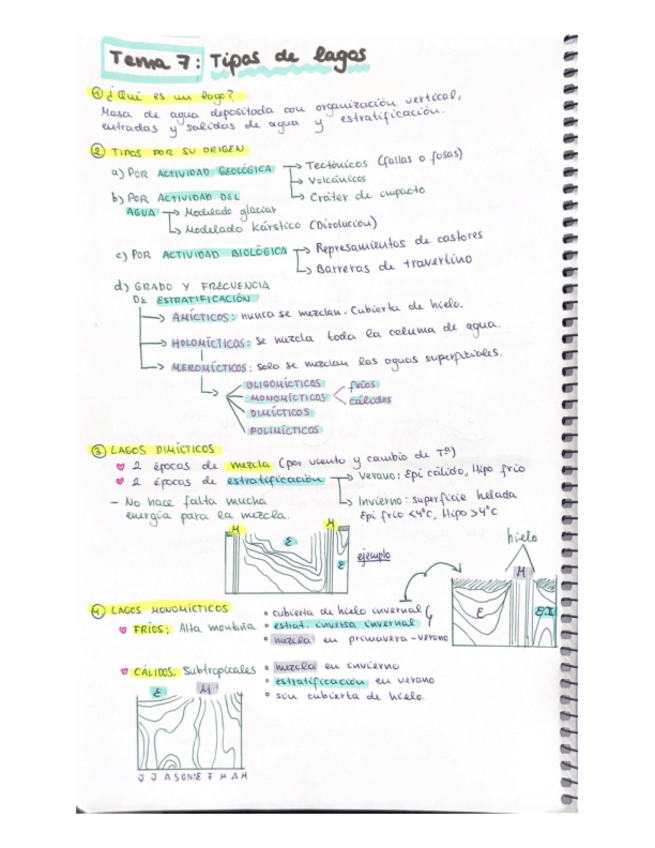 Tema 7: Tipos de lagos
① ¿Qué es un lago?
Masa de agua depositada con organización vertical,
entradas y salidas de agua y estratificación.
② TIPOS POR SU ORIGEN
a) POR ACTIVIDAD GEOLÓGICA → Tectónicos (fallas o fosas)
→ Volcánicos
→ Cráter de impacto
b) POR ACTIVIDAD DEL
AGUA → Modulado glaciar
→ Modelado kárstico (Disolución)
c) POR ACTIVIDAD BIOLÓGICA → Represamientos de castores
→ Barreras de travertino
d) GRADO Y FRECUENCIA
DE ESTRATIFICACIÓN
→ AMÍCTICOS: nunca se mezclan. Cubierta de hielo.
→ HOLOMÍCTICOS: se mezcla toda la columa de agua.
→ MEROMÍCTICOS: solo se mezclan las aguas superficiales.
OLIGOMÍCTICOS
MONOMÍCTICOS < fríos
cálidos
DIMÍCTICOS
POLIMÍCTICOS
③ LAGOS DIMÍCTICOS
2 épocas de mezcla (por viento y cambio de Tª)
2 épocas de estratificación → Verano: Epi cálido, Hipo frío
→ Invierno: superficie helada
Epi frío <4ºC, Hipo >4ºC
- No hace falta mucha
energía para la mezcla.
M E M E
ejemplo
hielo
M
E EI
④ LAGOS MONOMÍCTICOS
FRÍOS: Alta montaña
• cubierta de hielo invernal
• estrat. inversa invernal
• mezcla en primavera-verano
CÁLIDOS: Subtropicales
• mezcla en invierno
• estratificación en verano
• sin cubierta de hielo.
E M
J J A S O N D E F M A M